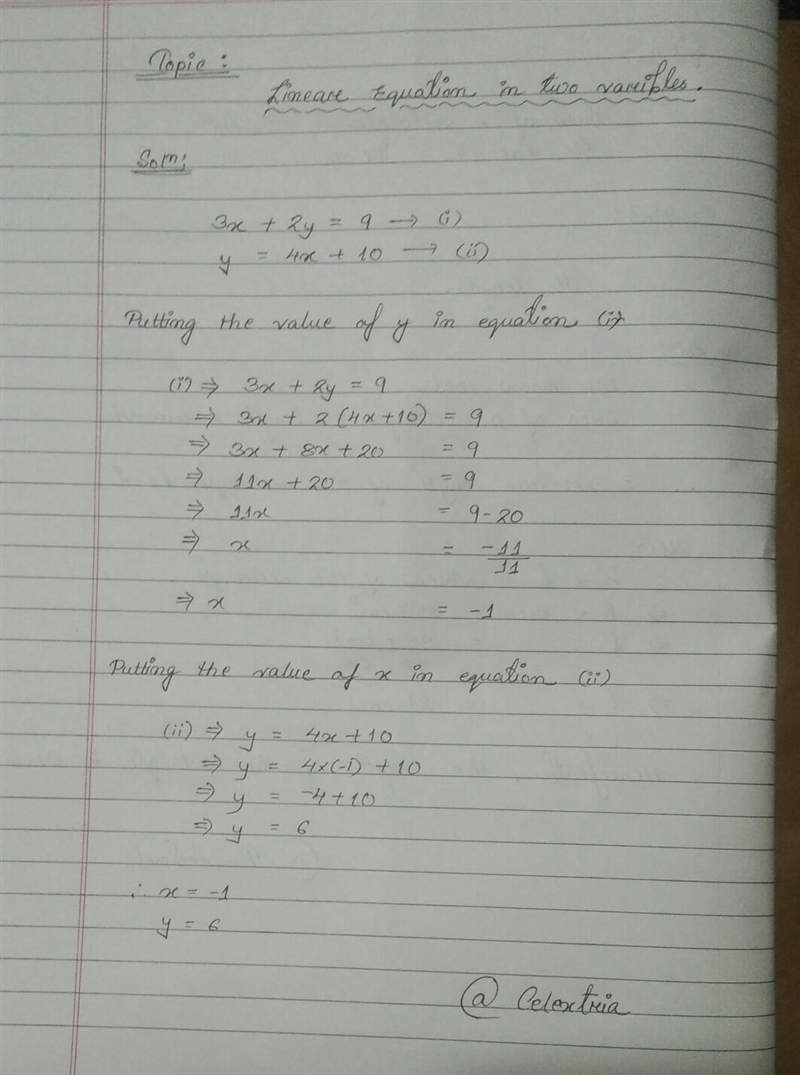 Topic :
Lineare Equation in two varifles.
Som:
3x + 2y = 9 → (i)
y = 4x + 10 → (ii)
Putting the value of y in equation (i)
(i) ⇒ 3x + 2y = 9
⇒ 3x + 2 (4x+10) = 9
⇒ 3x + 8x + 20 = 9
⇒ 11x + 20 = 9
⇒ 11x = 9-20
⇒ x = -11/11
⇒ x = -1
Putting the value of x in equation (ii)
(ii) ⇒ y = 4x + 10
⇒ y = 4×(-1) + 10
⇒ y = -4 + 10
⇒ y = 6
∴ x = -1
y = 6
@ Celextria